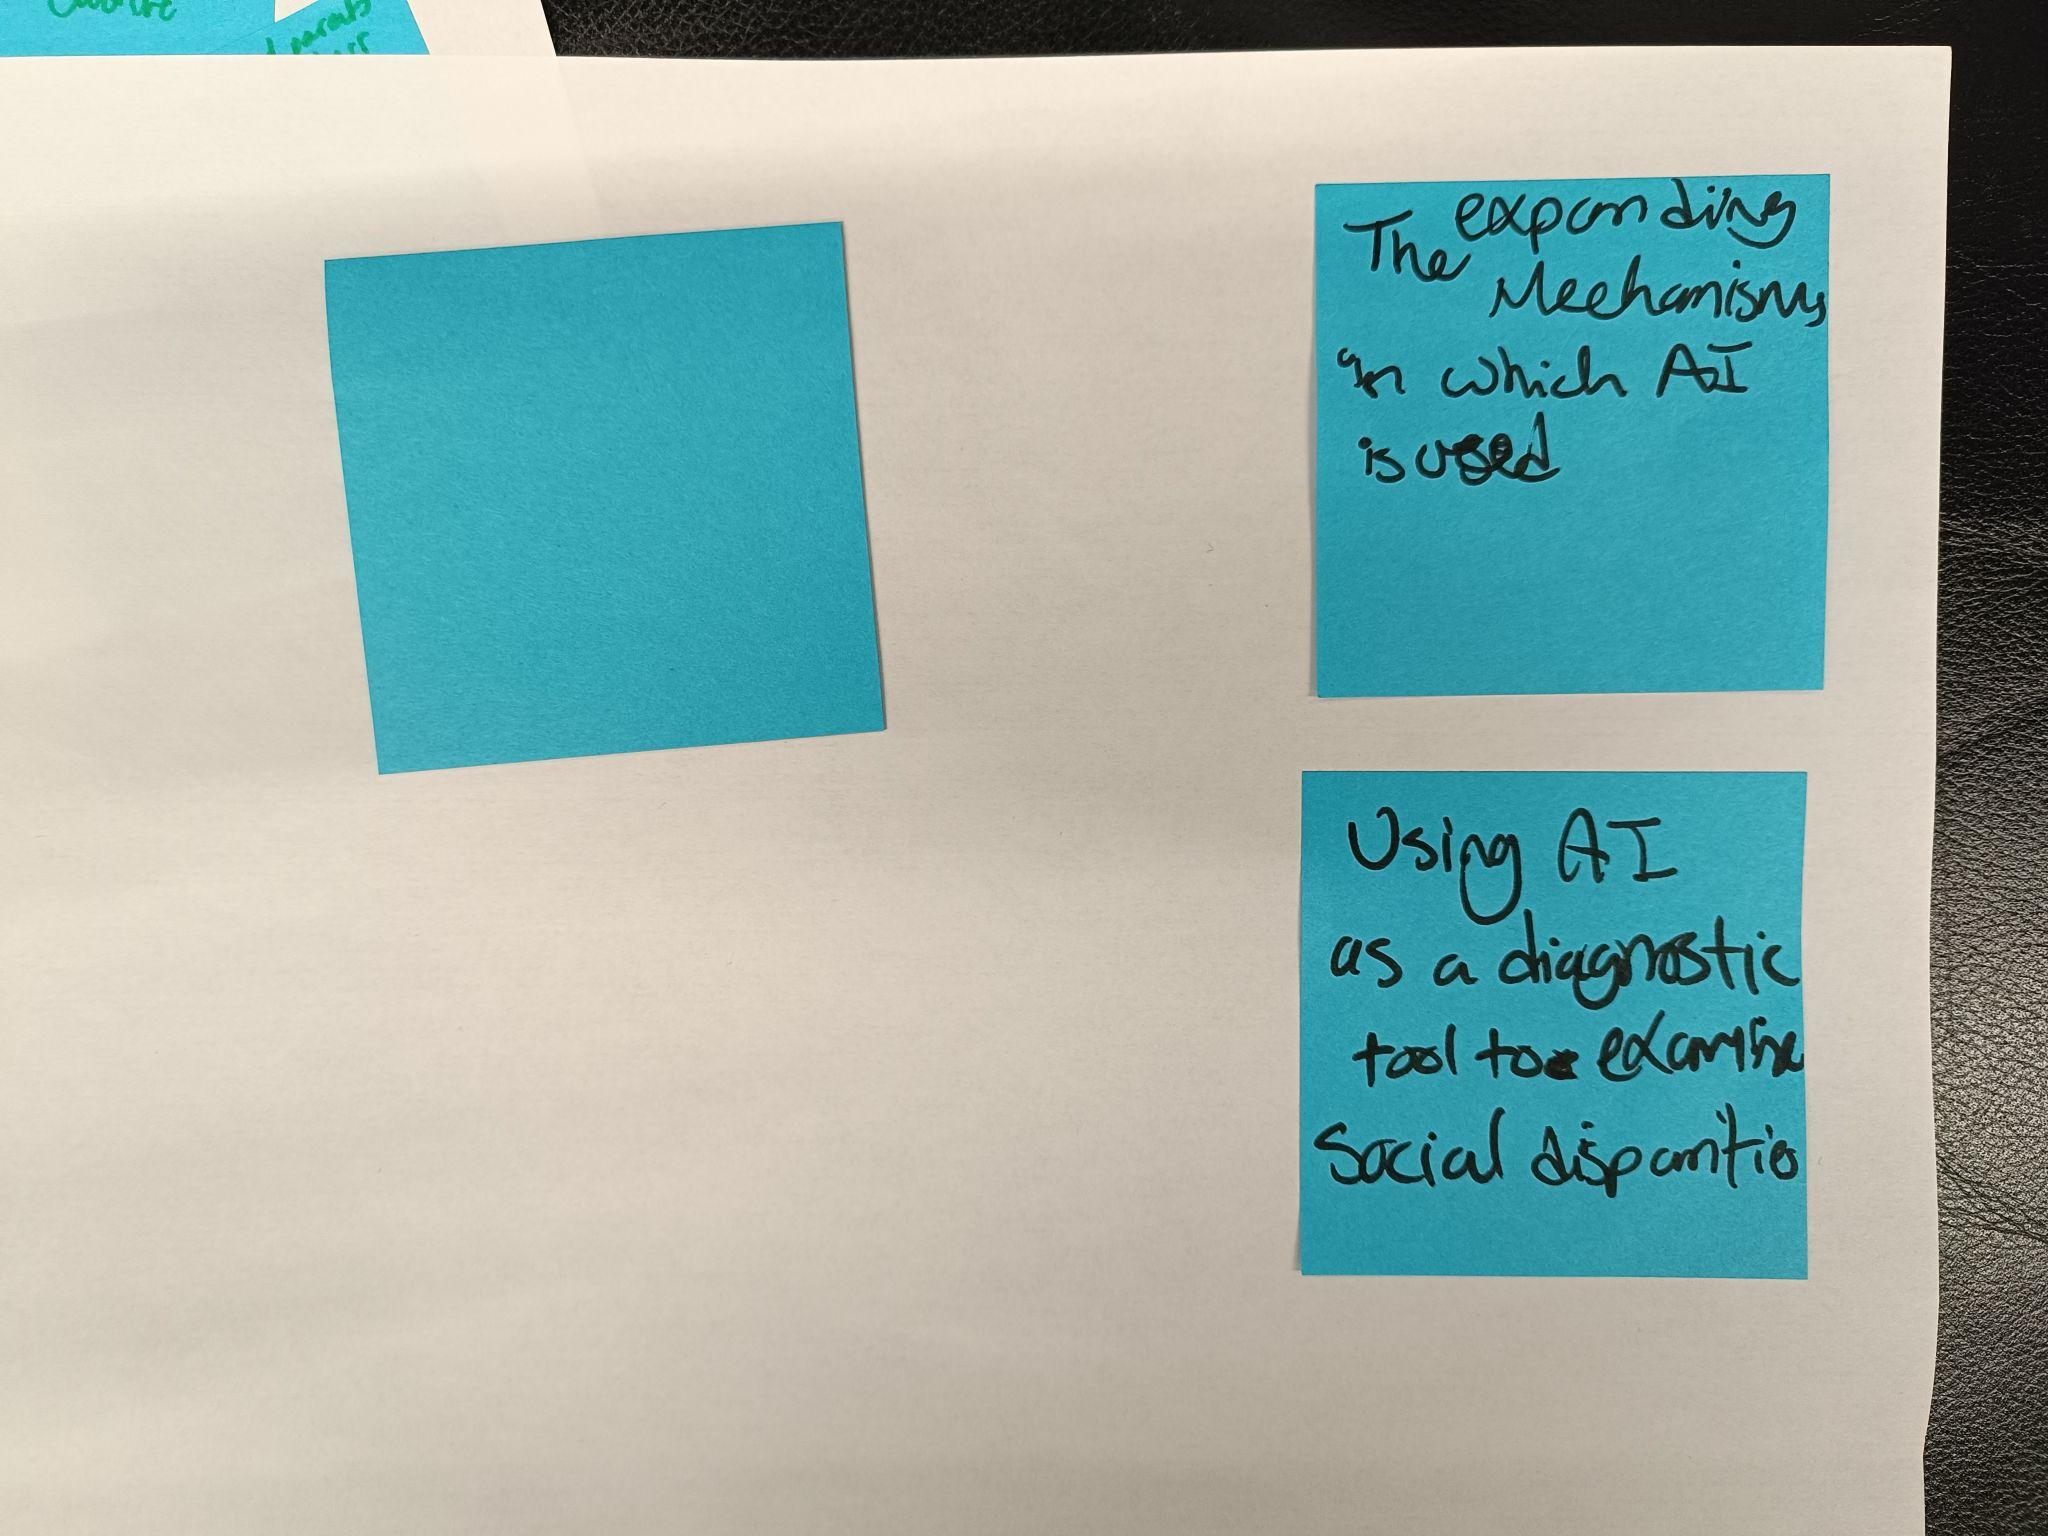 The expanding
Mechanisms
in which AI
is used
Using AI
as a diagnostic
tool to examine
Social disparities